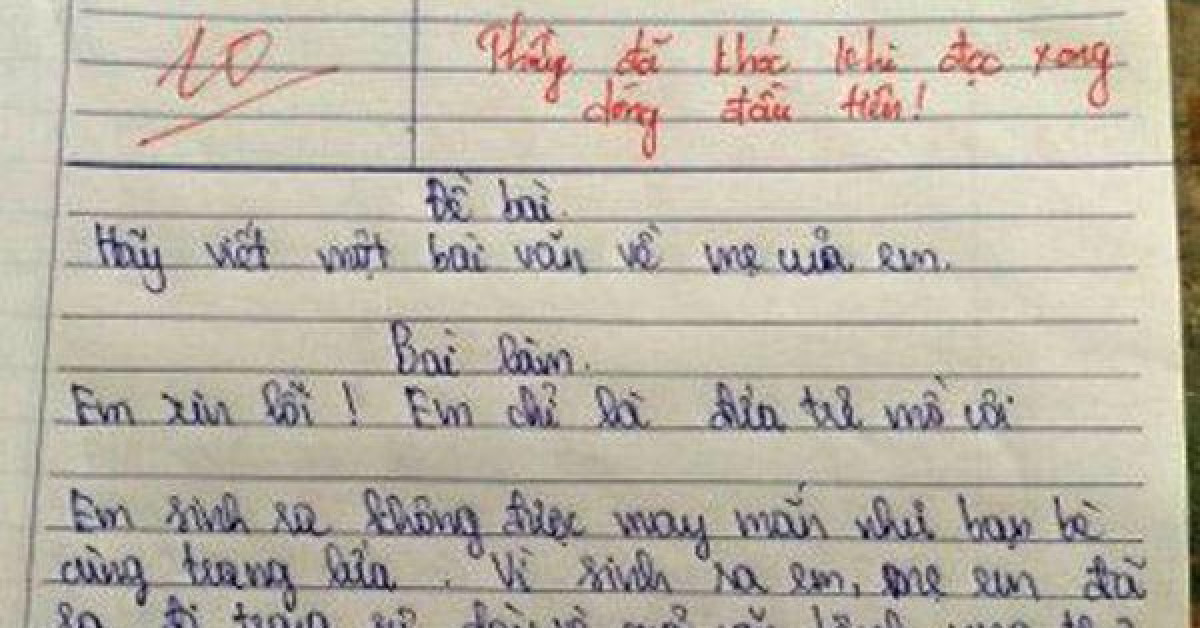 10
Thầy đã khóc khi đọc xong
dòng đầu tiên!
Đề bài.
Hãy viết một bài văn về mẹ của em.
Bài làm.
Em xin lỗi! Em chỉ là đứa trẻ mồ côi
Em sinh sa không được may mắn như bạn bè
cùng trang lứa. Vì sinh sa em, mẹ em đã
sa đi trong